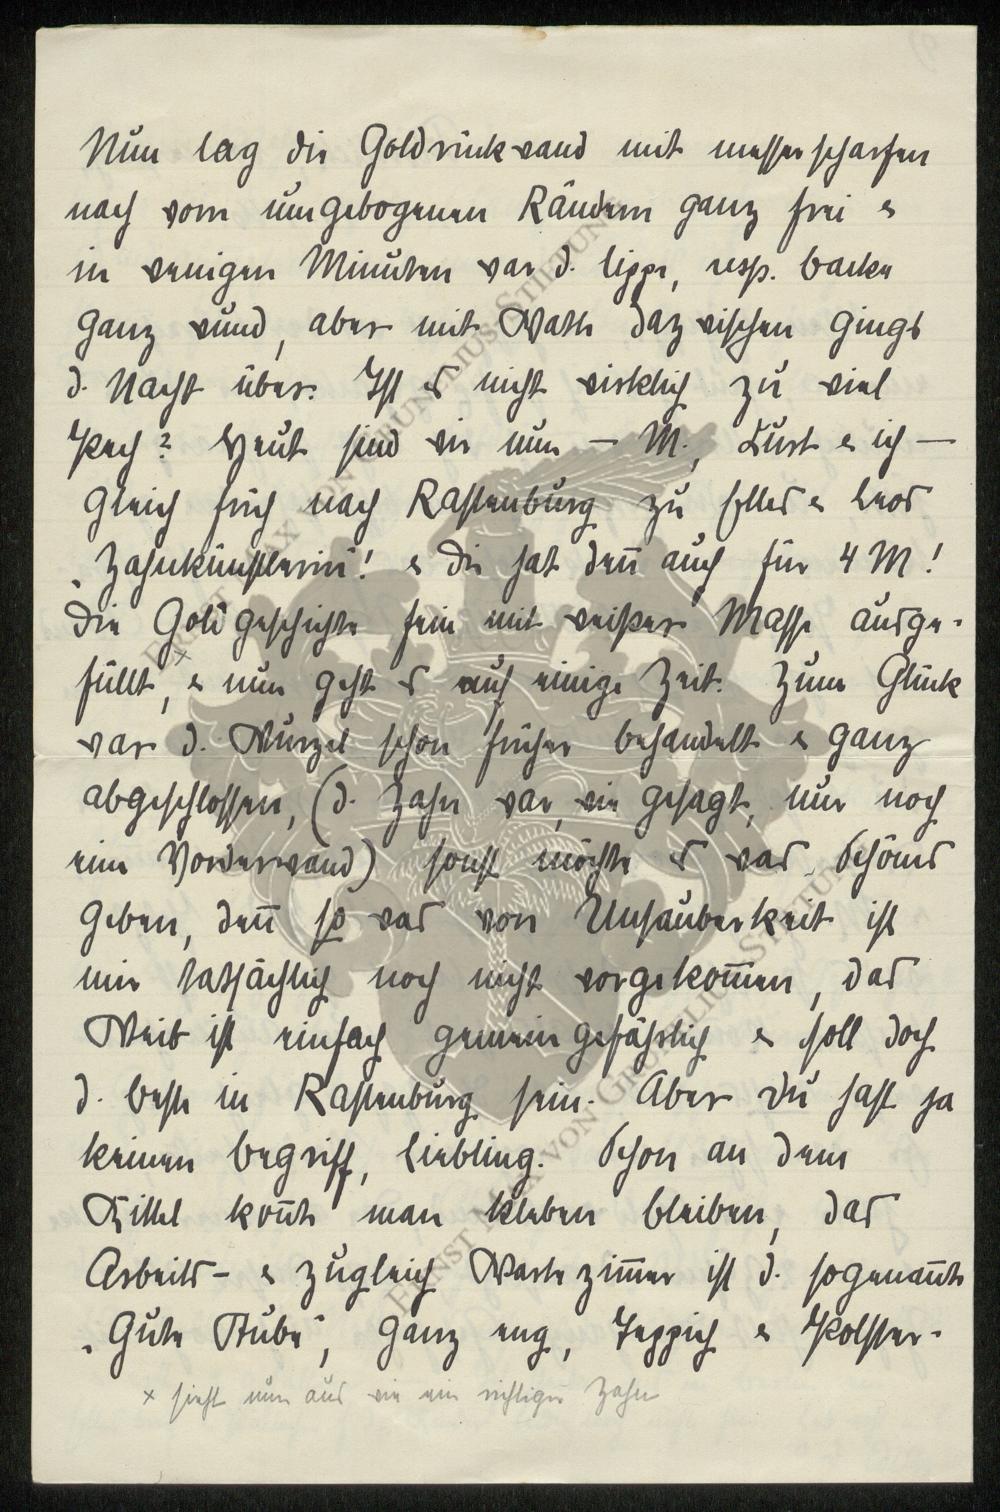 Nun lag die Goldrückwand mit messerscharfen
nach vorn umgebogenen Rändern ganz frei &
in wenigen Minuten war d. Lippe, resp. Backe
ganz wund, aber mit Watte dazwischen gings
d. Nacht über. Ist es nicht wirklich zu viel
Pech? Heut sind wir nun — M., Kurt & ich —
gleich früh nach Rastenburg zu &
„Zahnkünstlerin“! & die hat deñ auch für 4 M!
die Goldgeschichte fein mit weißer Masse ausge-
füllt ×, & nun geht es auf einige Zeit. Zum Glück
war d. Wurzel schon früher behandelt & ganz
abgeschlossen, (d. Zahn war, wie gesagt, nur noch
eine Vorderwand) sonst möchte es was Schönes
geben, deñ so was von Unsauberkeit ist
mir tatsächlich noch nicht vorgekom̄en, das
Weib ist einfach gemeingefährlich & soll doch
d. beste in Rastenburg sein. Aber Du hast ja
keinen Begriff, Liebling. Schon an dem
Kittel koñte man kleben bleiben, das
Arbeits- & zugleich Wartezim̄er ist d. sogenañte
„Gute Stube“, ganz eng, Teppich & Polster-
× sieht nun aus wie ein richtiger Zahn
ERNST MAX VON GRUNELIUS-STIFTUNG
ERNST MAX VON GRUNELIUS-STIFTUNG